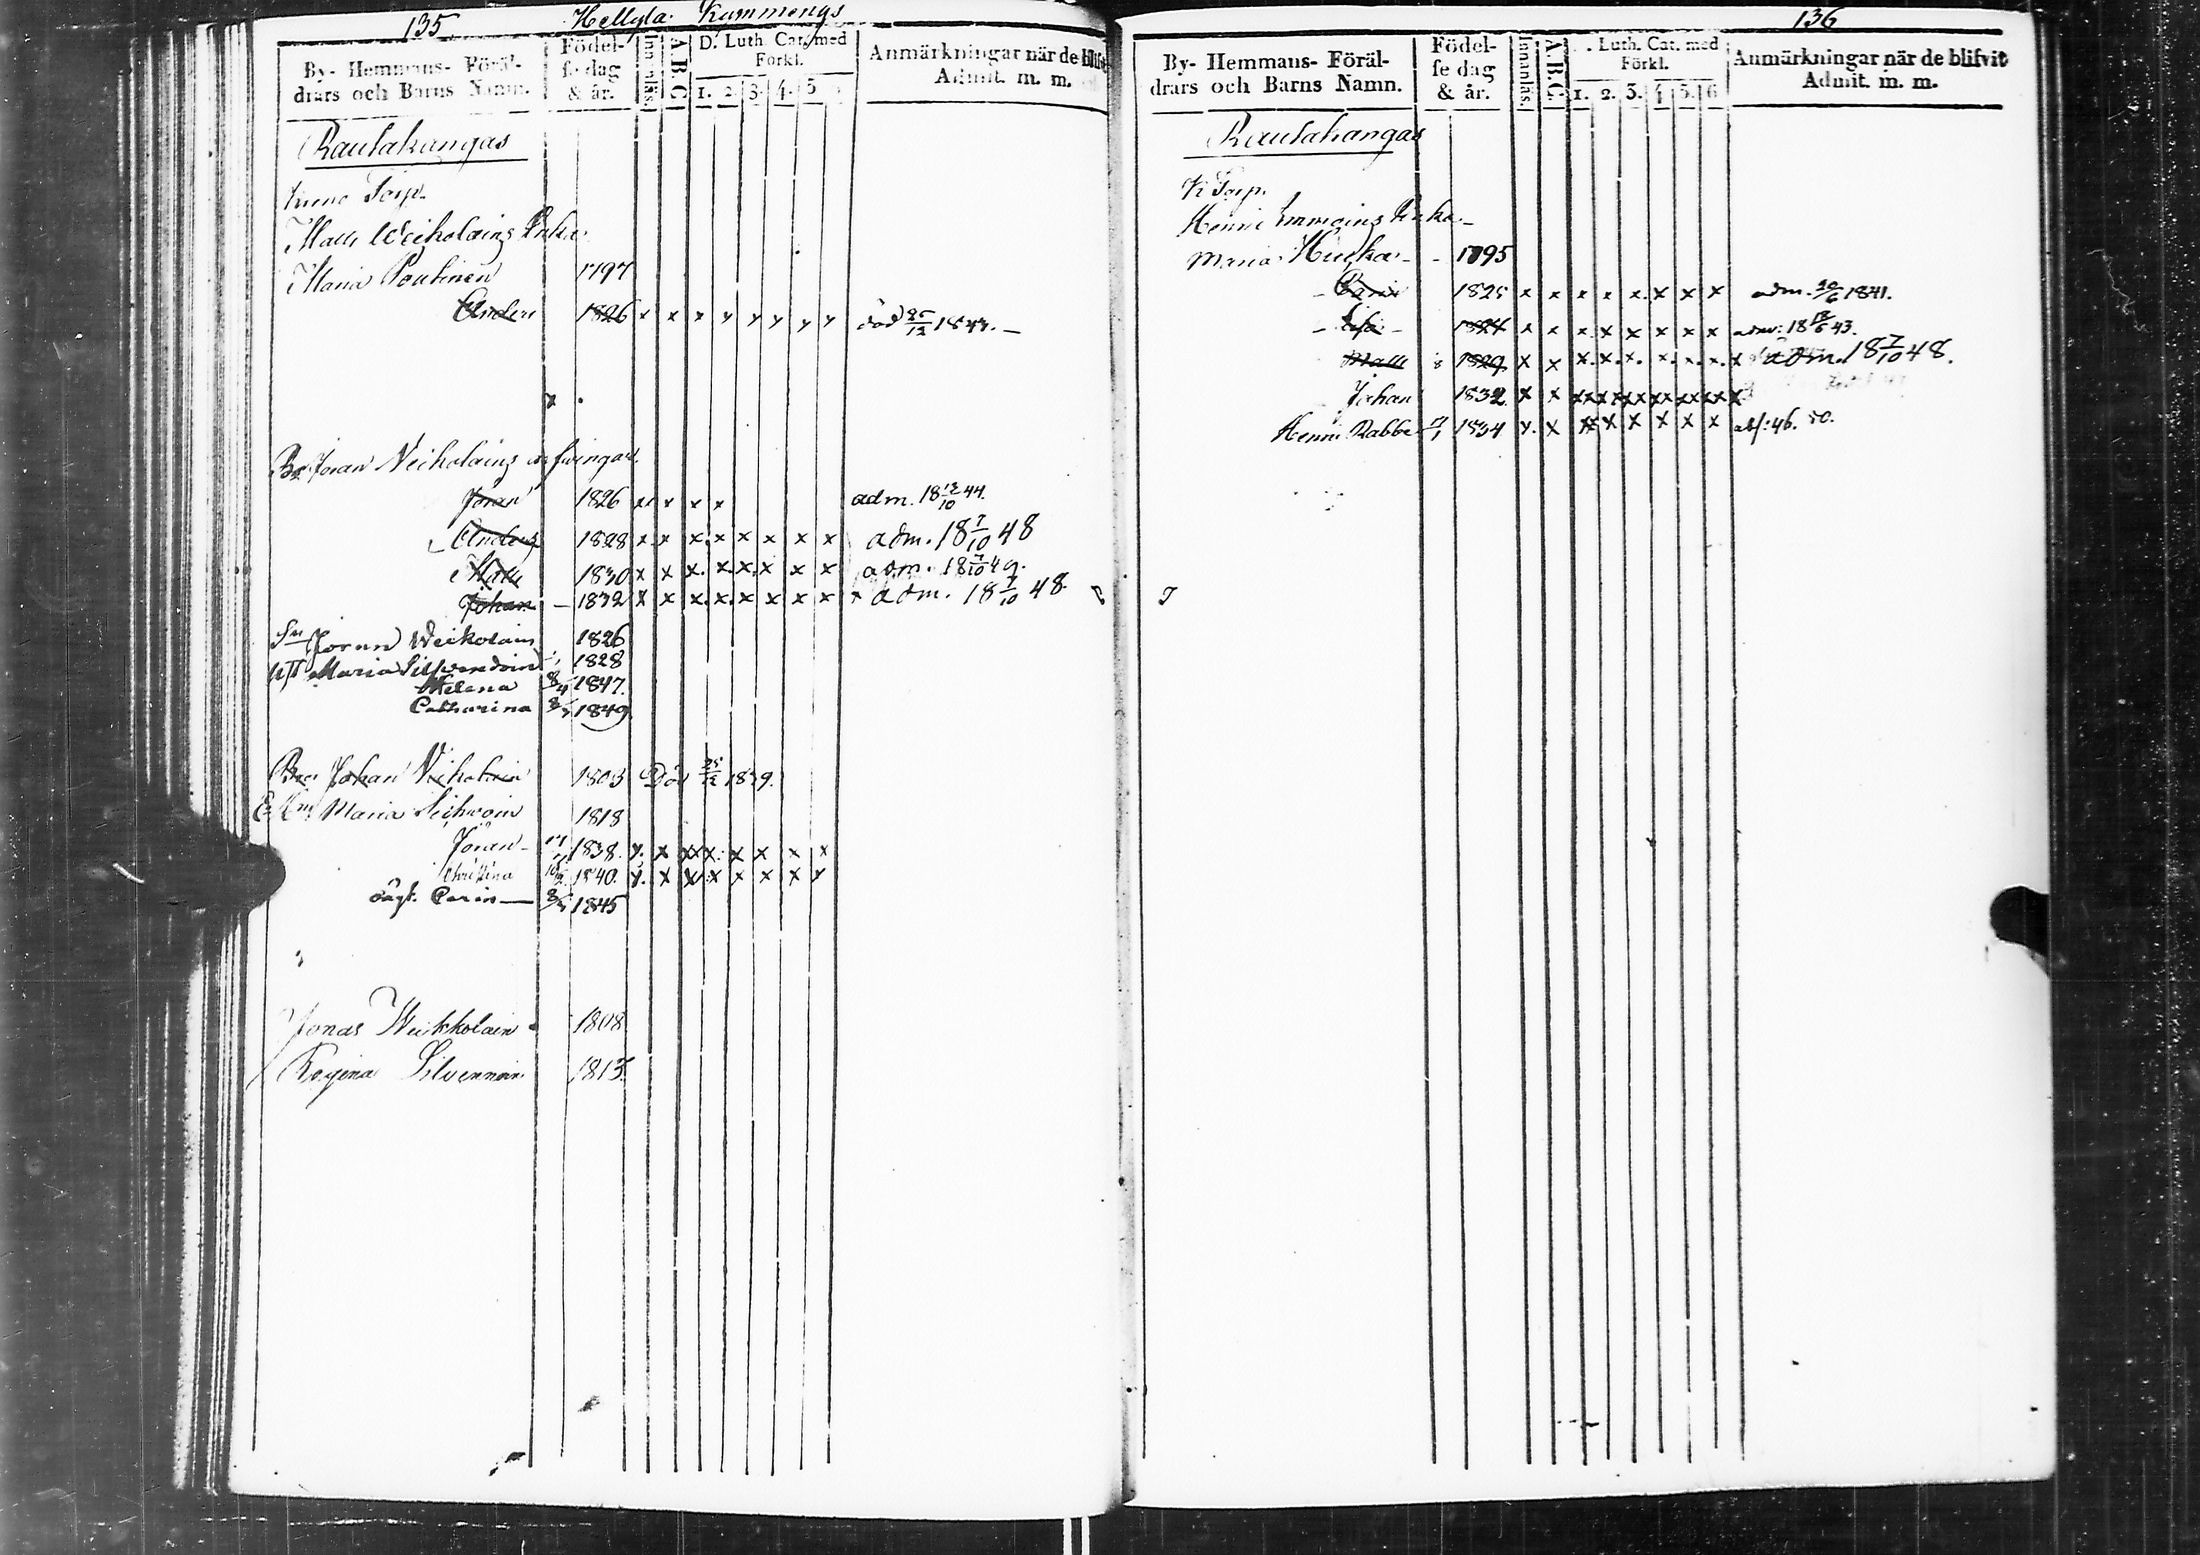 135 Hellyla Kymmengs
By- Hemmans- Föräl-
drars och Barns Namn.
Födel-
se dag
& år.
Innanläs.
A.B.C.
D. Luth. Cat. med
Förkl.
1. 2. 3. 4. 5
Anmärkningar när de
Admit. m. m.
Rautakangas
Torp.
Matts Weikolains Enka
Maria Poutinen 1797
Anders 1826 x x x y y y y y död 25/12 1843. —
x
Br. Jöran Veikolains arfwingar.
Jöran 1826 x x x x x adm. 18 13/10 44.
Anders 1828 x x x x x x x x adm. 18 7/10 48
Matts 1830 x x x x x x x x adm. 18 7/10 49.
Johan — 1832 x x x x x x x x x adm. 18 7/10 48
Sn Jöran Weikolain 1826
Maria 1828
Helena 8/4 1847.
Catharina 3/5 1849
Br. Johan Veikolain 1803 Död 25/12 1839.
Maria 1818
Jöran 1838. x. x xx x x x x x
Christina 1840. x. x x x x x x x
Carin — 3/5 1845
Jonas Weikkolain 1808
Regina Silvennoin 1813.
136
By- Hemmans- Föräl-
drars och Barns Namn.
Födel-
se dag
& år.
Innanläs.
A.B.C.
Luth. Cat. med
Förkl.
1. 2. 3. 4 5. 6
Anmärkningar när de blifvit
Admit. m. m.
Rautakangas
K Torp.
Henric Immoins Enka —
Maria Hirska - - 1795
Carin 1825 x x x x x x x x adm. 20/6 1841.
- Lisa - 1824 x x x x x x x x adm: 18 18/6 43.
Matts 1829 x x x x x x x x x adm. 18 7/10 48.
Johan 1832 x x xx xx xx xx xx xx x
Henric Rabbe 1834 x. x xx x x x x x abs: 46. 50.